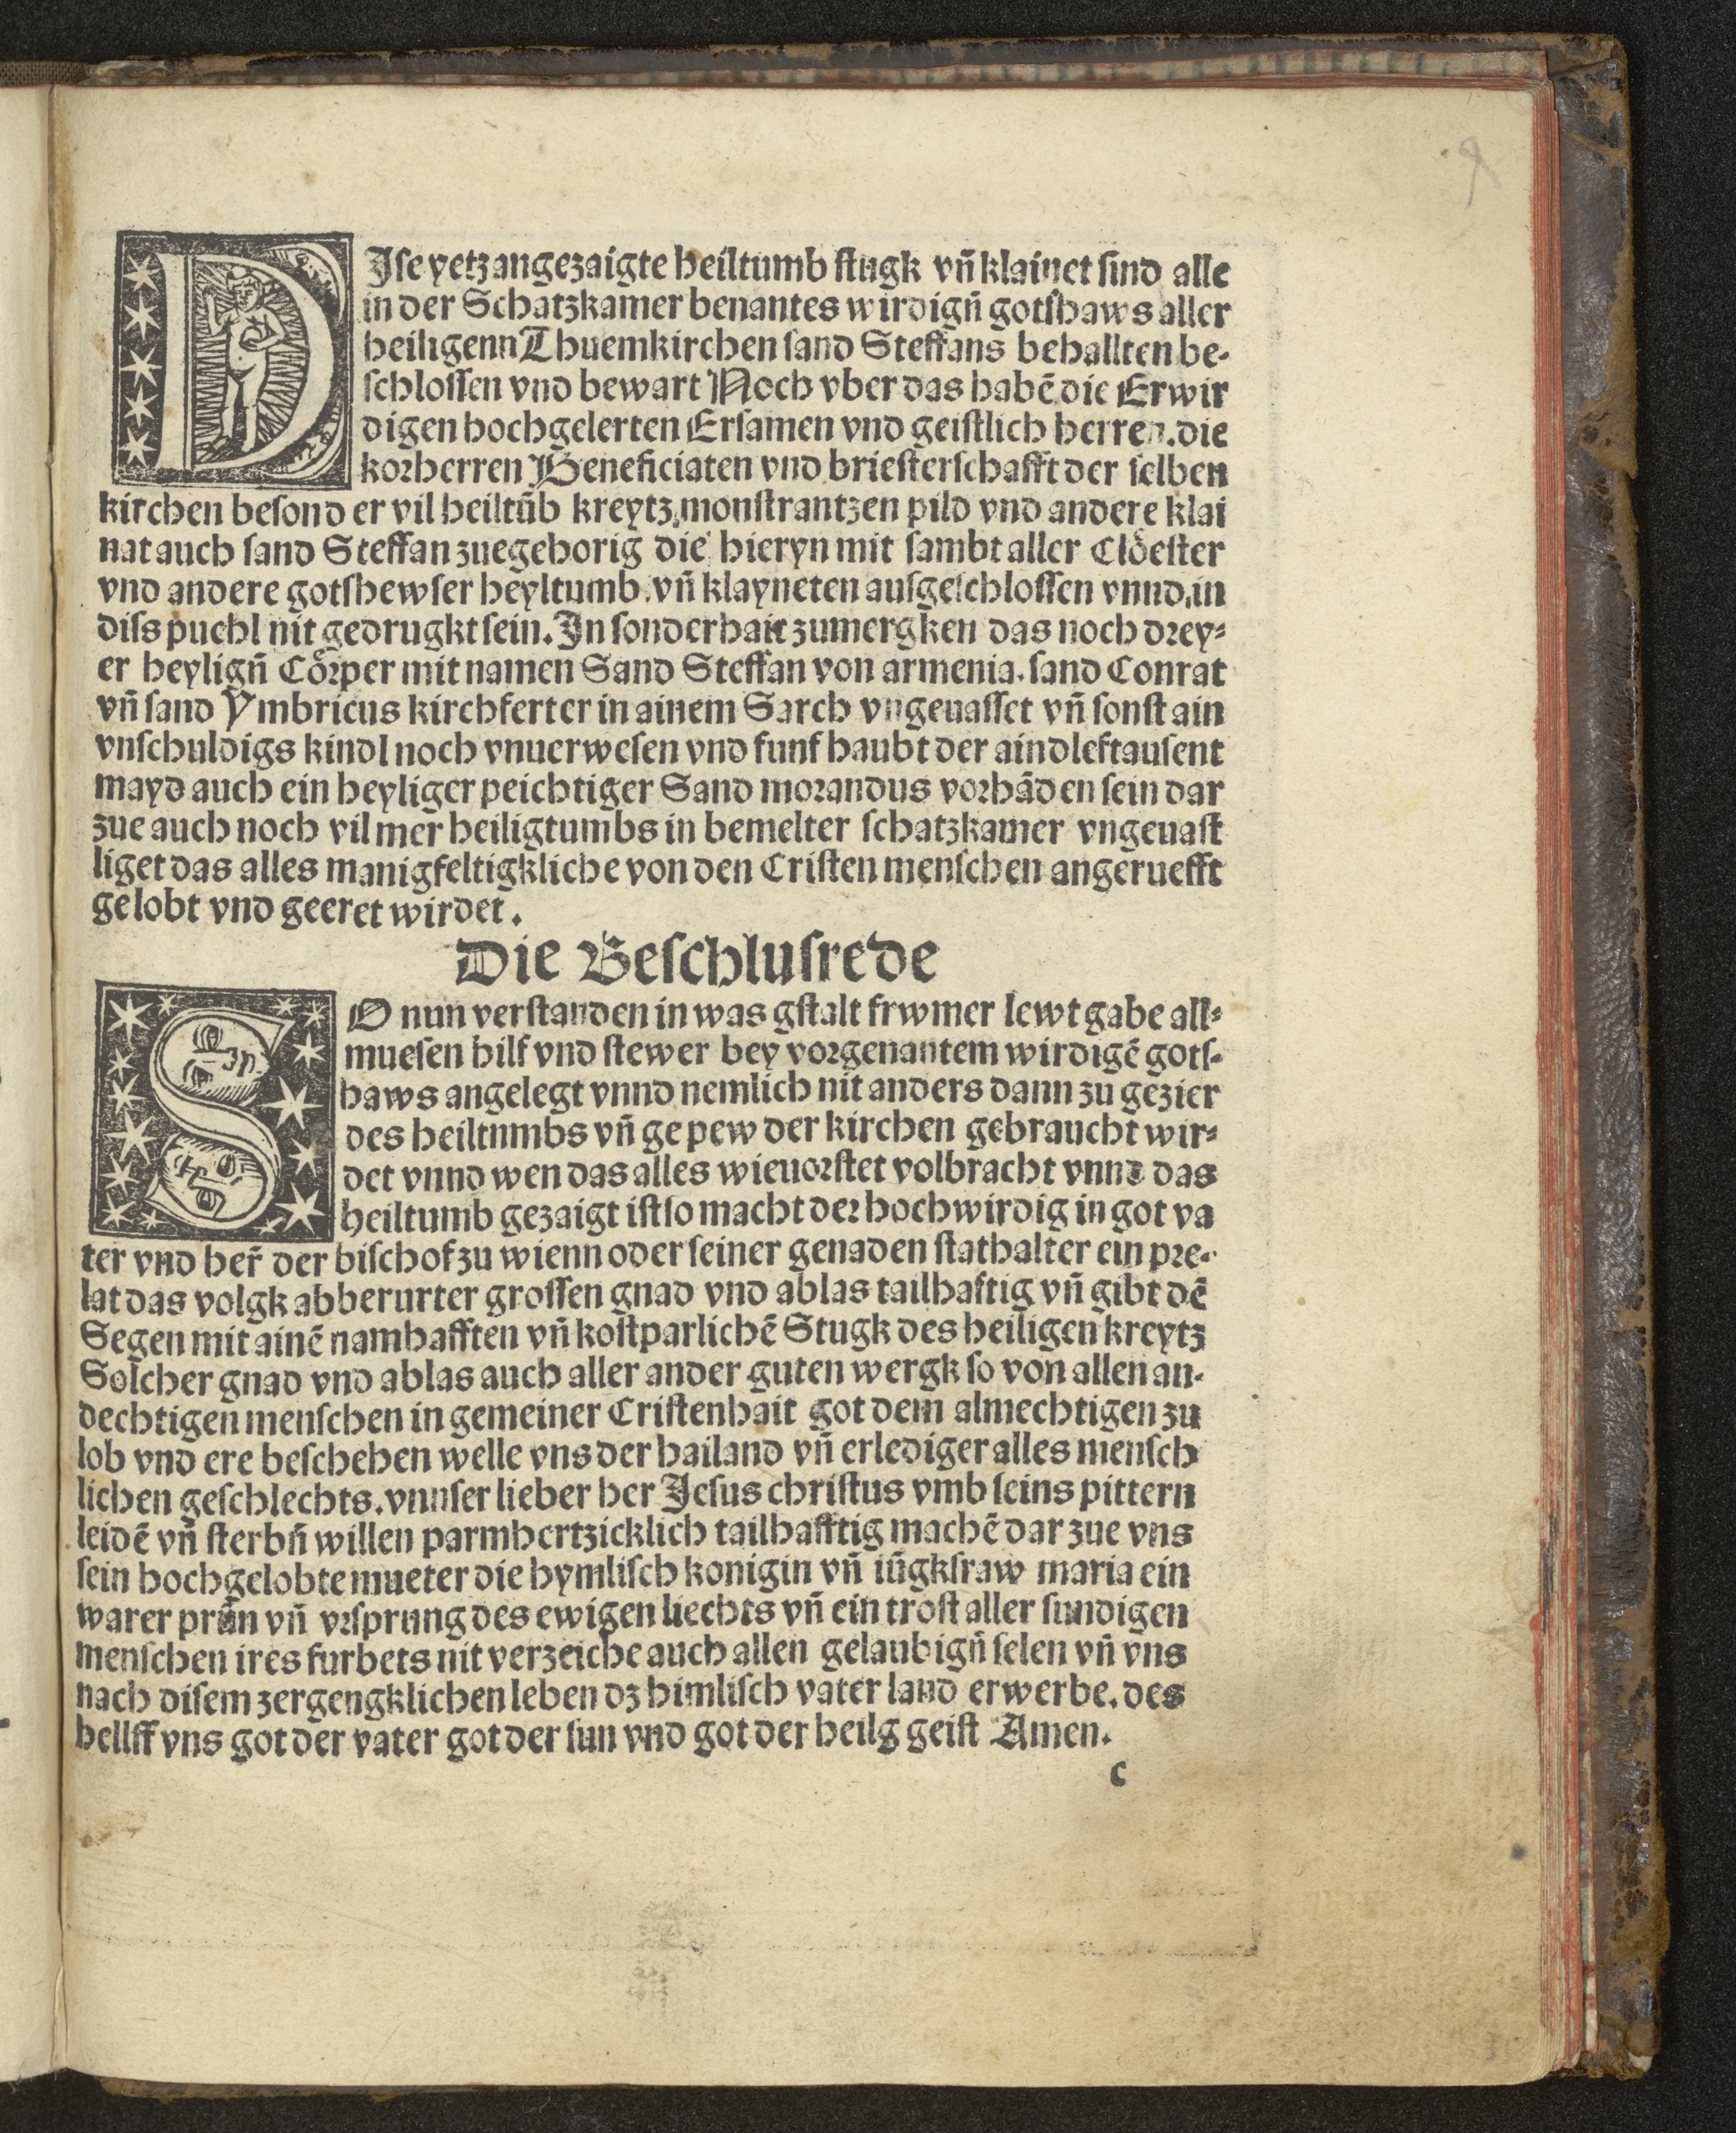 DIſe yetz angezaigte heiltumb ſtugk vñ klainet ſind alle
in der Schatzkamer benantes wirdigñ gotſhaws aller
heiligenn Thuemkirchen ſand Steffans behallten be-
ſchloſſen vnd bewart Noch vber das habē die Erwir
digen hochgelerten Erſamen vnd geiſtlich herren. die
korherren Beneficiaten vnd brieſterſchafft der ſelben
kirchen beſonder vil heiltūb kreytz, monſtrantzen pild vnd andere klai
nat auch ſand Steffan zuegehorig die hieryn mit ſambt aller Clöeſter
vnd andere gotſhewſer heyltumb. vñ klayneten auſgeſchloſſen vnnd in
diſs puchl nit gedrugkt ſein. In ſonderhait zumergken das noch drey-
er heyligñ Cörper mit namen Sand Steffan von armenia. ſand Conrat
vñ ſand Ymbricus kirchferter in ainem Sarch vngeuaſſet vñ ſonſt ain
vnſchuldigs kindl noch vnuerweſen vnd funf haubt der aindleftauſent
mayd auch ein heyliger peichtiger Sand morandus vorhāden ſein dar
zue auch noch vil mer heiligtumbs in bemelter ſchatzkamer vngeuaſt
liget das alles manigfeltigkliche von den Criſten menſchen angeruefft
gelobt vnd geeret wirdet.
Die Beſchluſrede
SO nun verſtanden in was gſtalt frwmer lewt gabe all-
mueſen hilf vnd ſtewer bey vorgenantem wirdigē gotſ-
haws angelegt vnnd nemlich nit anders dann zu gezier
des heiltumbs vñ gepew der kirchen gebraucht wir-
det vnnd wen das alles wieuorſtet volbracht vnnd das
heiltumb gezaigt iſt ſo macht der hochwirdig in got va
ter vnd her̃ der biſchof zu wienn oder ſeiner genaden ſtathalter ein pre-
lat das volgk abberurter groſſen gnad vnd ablas tailhaftig vñ gibt dē
Segen mit ainē namhafften vñ koſtparlichē Stugk des heiligen kreytz
Solcher gnad vnd ablas auch aller ander guten wergk ſo von allen an-
dechtigen menſchen in gemeiner Criſtenhait got dem almechtigen zu
lob vnd ere beſchehen welle vns der hailand vñ erlediger alles menſch
lichen geſchlechts. vnnſer lieber her Jeſus chriſtus vmb ſeins pittern
leidē vñ ſterbñ willen parmhertzicklich tailhafftig machē dar zue vns
ſein hochgelobte mueter die hymliſch konigin vñ iūgkfraw maria ein
warer prūn vñ vrſprung des ewigen liechts vñ ein troſt aller ſundigen
menſchen ires furbets nit verzeiche auch allen gelaubigñ ſelen vñ vns
nach diſem zergengklichen leben dz himliſch vater land erwerbe. des
hellff vns got der vater got der ſun vnd got der heilg geiſt Amen.
c